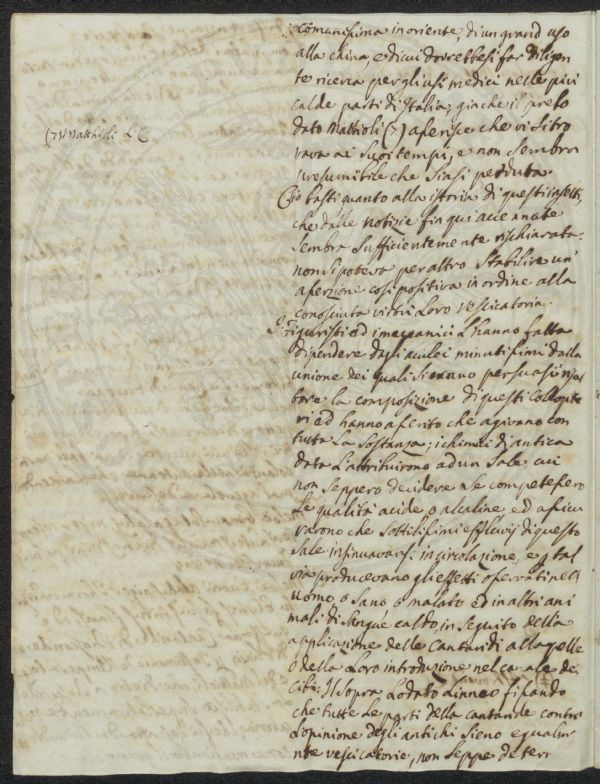 comunissima in oriente, di un grand uso
alla china, e di cui dovrebbesi far diligen
te ricerca per gli usi medici nelle più
calde parti di Italia; giache il prelo
dato Mattioli (7) aferisce che vi si tro
(7) Matthioli L. C.
vava ai suoi tempi, e non sembra
presumibile che siasi perduta.
Ciò basti quanto alla istoria di questi insetti,
che dalle notizie fin qui accennate
sembra sufficientemente rischiarata.
non si poteva per altro stabilire un'
aserzione così positiva in ordine alla
conosciuta virtù Loro vescicatoria.
I figuristi ed i meccanici L'hanno fatta
dipendere dagli aculei minutissimi dalla
unione dei quali si erano persuasi
la composizione di questi Collopte
ri ed hanno aserito che agivano con
tutta la sostanza; i chimici di antica
data L'attribuirono ad un sale cui
non seppero decidere se competesero
Le qualità acide o alcaline, ed asicu
rarono che sottilissimi effluvij di questo
sale insinuavansi in circolazione, e p tal
via producevano gli effetti oservati nell
uomo o sano o malato ed in altri ani
mali di sangue caldo, in seguito della
applicazione delle Cantaridi alla pelle
o della Loro introduzione nel canale de
cibi: Il sopra Lodato Linneo fissando
che tutte le parti della cantaride contro
L'opinione degli antichi sieno egualm
nte vescicatorie, non seppe deter